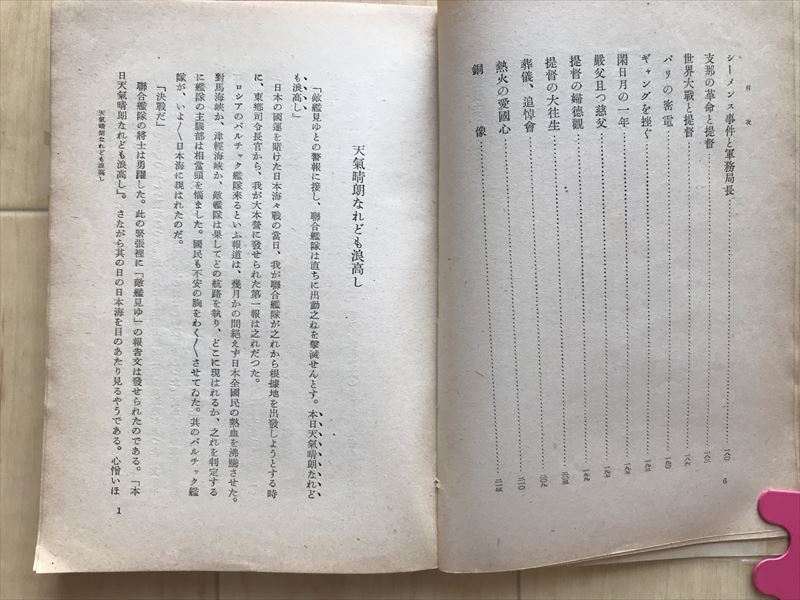 目次
シーメンス事件と軍務局長
支那の革命と提督
世界大戰と提督
パリの密電
ギャングを挫ぐ
閑日月の一年
嚴父且つ慈父
提督の婦德觀
提督の大往生
葬儀、追悼會
熱火の愛國心
銅像
6
天氣晴朗なれども浪高し
「敵艦見ゆとの警報に接し、聯合艦隊は直ちに出動之れを擊滅せんとす。本日天氣晴朗なれど
も浪高し」
日本の國運を賭けた日本海々戰の當日、我が聯合艦隊が之れから根據地を出發しようとする時
に、東鄕司令長官から、我が大本營に發せられた第一報は之れだつた。
ロシアのバルチック艦隊來るといふ報道は、幾月かの間絕えず日本全國民の熱血を沸騰させた。
對馬海峽か、津輕海峽か、敵艦隊は果してどの航路を執り、どこに現はれるか、之れを判定する
に艦隊の主腦部は相當頭を惱ました。國民も不安の胸をわく〱させてゐた。其のバルチック艦
隊が、いよ〱日本海に現はれたのだ。
「決戰だ」
聯合艦隊の將士は勇躍した。此の緊張裡に「敵艦見ゆ」の報吿文は發せられたのである。「本
日天氣晴朗なれども浪高し」。さながら其の日の日本海を目のあたり見るやうである。心憎いほ
天氣晴朗なれども浪高し
1